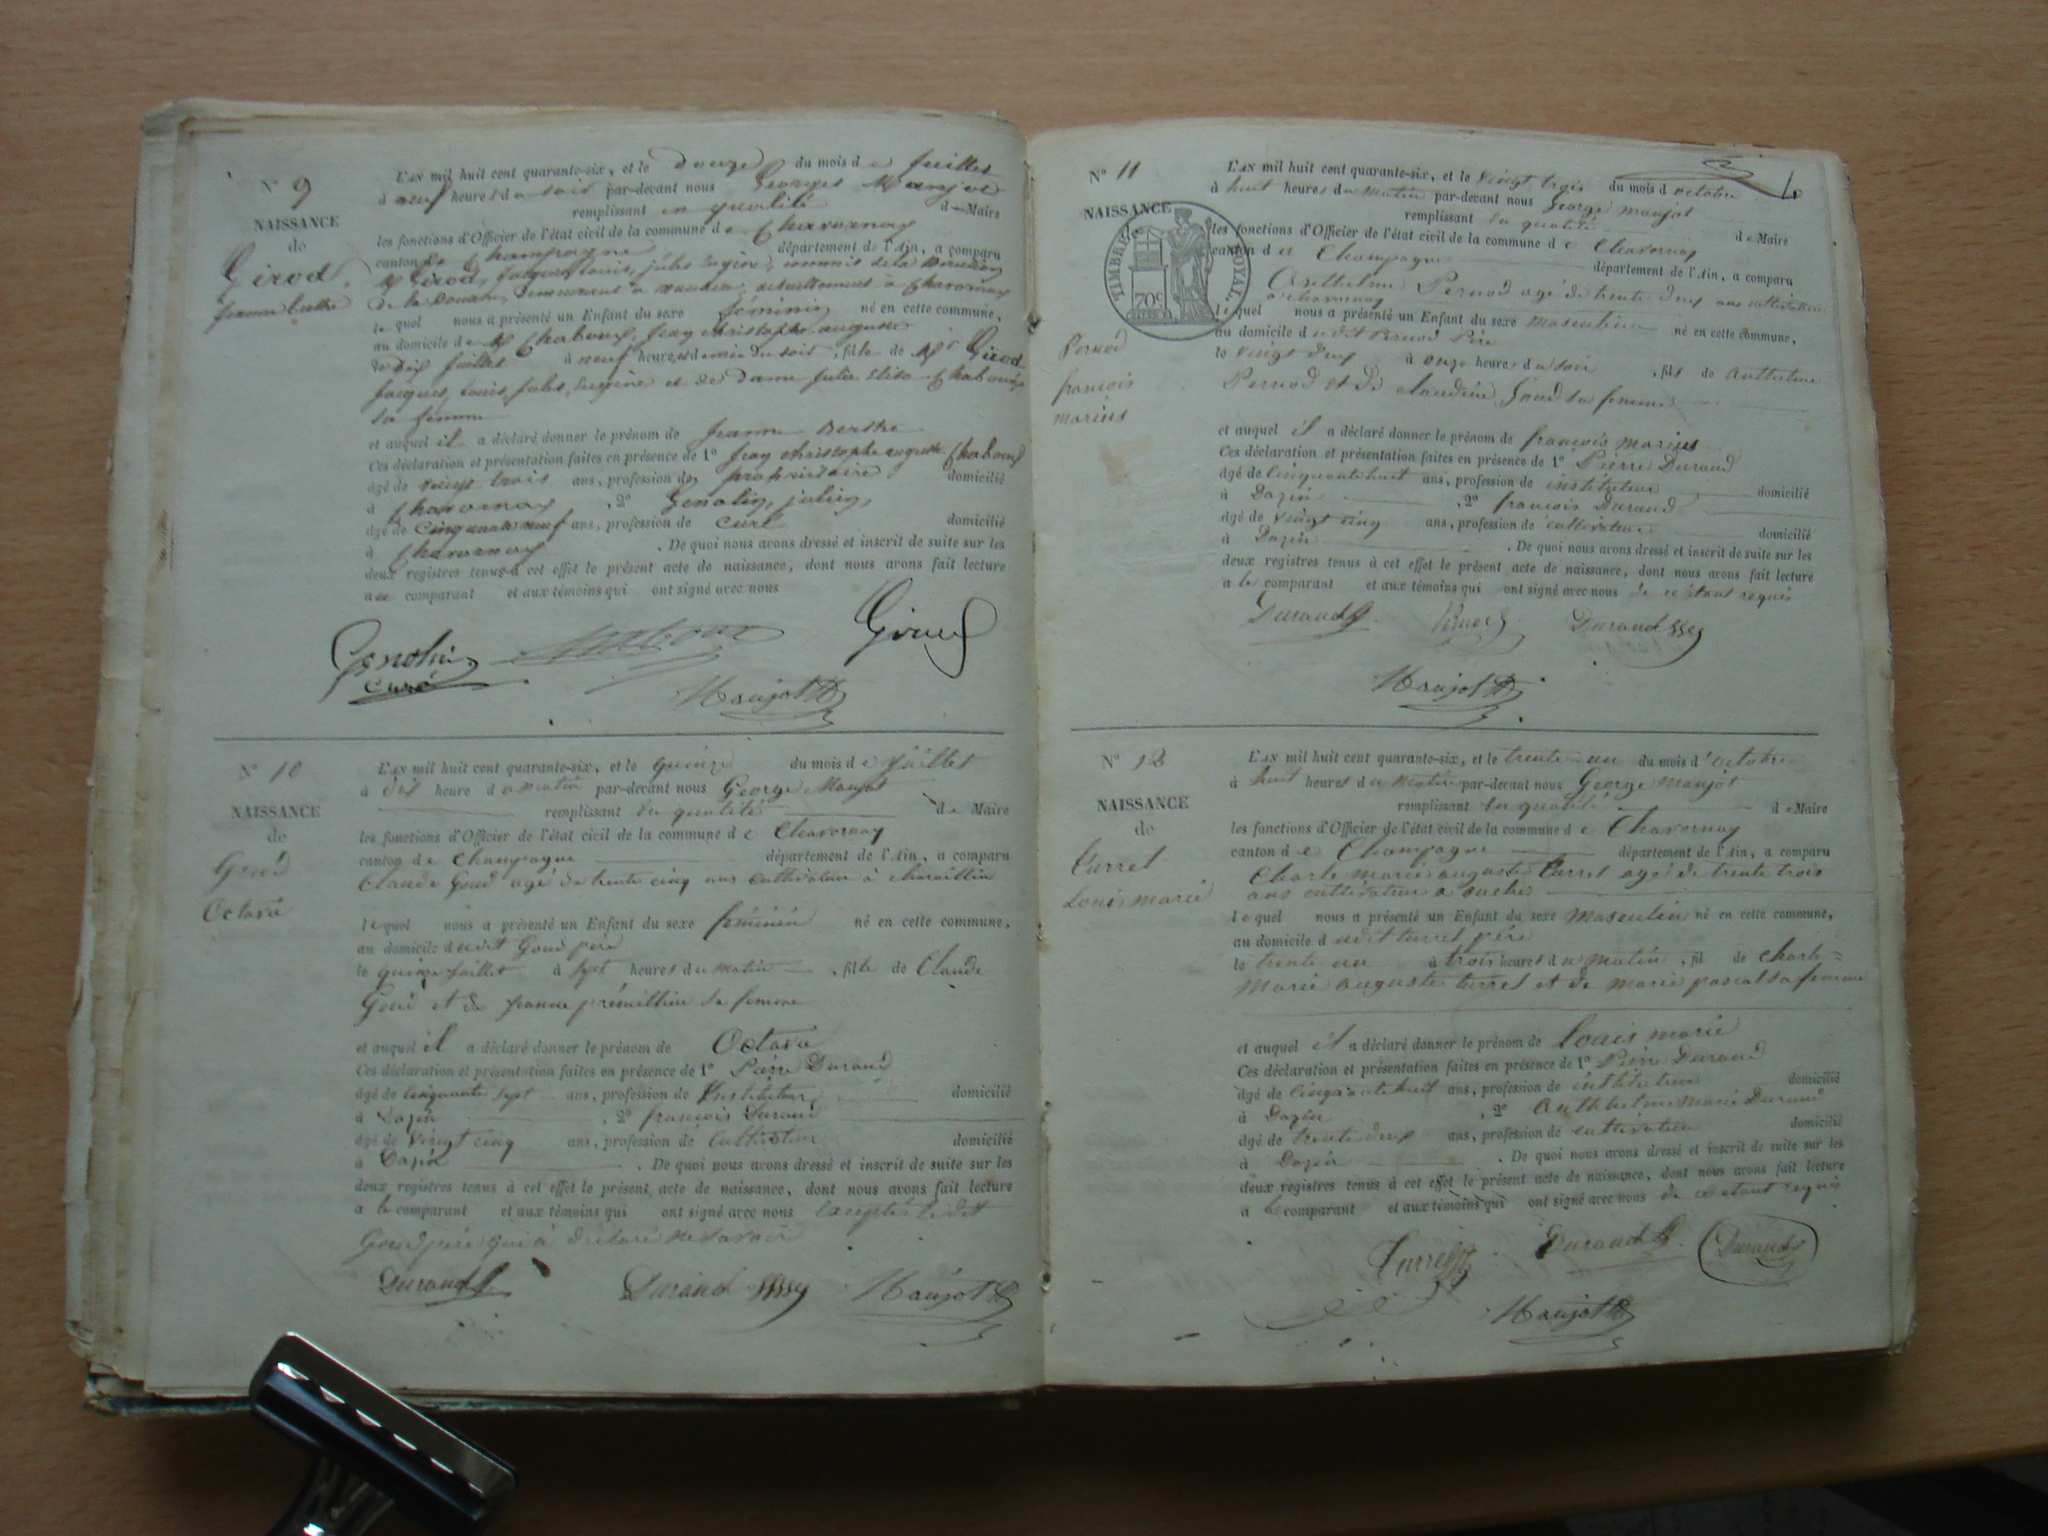 N° 9
NAISSANCE
de
Girod,
jeanne berthe
L'AN mil huit cent quarante-six, et le douze du mois de juillet
à neuf heures du soir par-devant nous Georges Maujot
remplissant en qualité de Maire
les fonctions d'Officier de l'état civil de la commune de Chavornay
canton de Champagne département de l'Ain, a comparu
Mr Girod, jacques, louis, jules, eugène, commis de la Direction
de la Douane, demeurant à actuellement à Chavornay
lequel nous a présenté un Enfant du sexe féminin né en cette commune,
au domicile de Mr Chaboux, jean christophe auguste
le dix juillet à neuf heures et demie du soir, fille de Mr Girod
jacques, louis, jules, eugène et de dame julie Elisa Chaboux
sa femme
et auquel il a déclaré donner le prénom de jeanne Berthe
Ces déclaration et présentation faites en présence de 1° jean christophe auguste Chaboux
âgé de vingt trois ans, profession de propriétaire domicilié
à Chavornay, 2° Genolin, julien,
âgé de cinquante neuf ans, profession de curé domicilié
à Chavornay. De quoi nous avons dressé et inscrit de suite sur les
deux registres tenus à cet effet le présent acte de naissance, dont nous avons fait lecture
au comparant et aux témoins qui ont signé avec nous
Genolin Chaboux Girod
curé
Maujot
N° 10
NAISSANCE
de
Goud
Octavie
L'AN mil huit cent quarante-six, et le quinze du mois de juillet
à dix heure du matin par-devant nous George Maujot
remplissant en qualité de Maire
les fonctions d'Officier de l'état civil de la commune de Chavornay
canton de Champagne département de l'Ain, a comparu
Claude Goud agé de trente cinq ans cultivateur à
lequel nous a présenté un Enfant du sexe féminin né en cette commune,
au domicile dudit Goud père
le quinze juillet à sept heures du matin, fille de Claude
Goud et de jeanne sa femme
et auquel il a déclaré donner le prénom de Octavie
Ces déclaration et présentation faites en présence de 1° Pierre Durand
âgé de cinquante sept ans, profession de Instituteur domicilié
à Dazin, 2° françois Durand
âgé de vingt cinq ans, profession de cultivateur domicilié
à Dazin. De quoi nous avons dressé et inscrit de suite sur les
deux registres tenus à cet effet le présent acte de naissance, dont nous avons fait lecture
a le comparant et aux témoins qui ont signé avec nous excepté ledit
Goud père qui a déclaré ne savoir
Durand Durand Maujot
N° 11
NAISSANCE
de
TIMBRE ROYAL.
70c
Pernod
françois
marius
L'AN mil huit cent quarante-six, et le vingt trois du mois d octobre
à huit heures du matin par-devant nous George maujot
remplissant en qualité de Maire
les fonctions d'Officier de l'état civil de la commune de Chavornay
canton de Champagne département de l'Ain, a comparu
Anthelme Pernod agé de trente deux ans cultivateur
à chavornay
lequel nous a présenté un Enfant du sexe masculin né en cette commune,
au domicile dudit Pernod Père
le vingt deux à onze heures du soir, fils de Anthelme
Pernod et de claudine Goud sa femme
et auquel il a déclaré donner le prénom de françois marius
Ces déclaration et présentation faites en présence de 1° Pierre Durand
âgé de cinquante huit ans, profession de instituteur domicilié
à Dazin, 2° françois Durand
âgé de vingt cinq ans, profession de cultivateur domicilié
à Dazin. De quoi nous avons dressé et inscrit de suite sur les
deux registres tenus à cet effet le présent acte de naissance, dont nous avons fait lecture
a le comparant et aux témoins qui ont signé avec nous de ce étant requis
Durand Durand
Maujot
N° 12
NAISSANCE
de
turrel
Louis marie
L'AN mil huit cent quarante-six, et le trente un du mois d'octobre
à huit heures du matin par-devant nous George maujot
remplissant en qualité de Maire
les fonctions d'Officier de l'état civil de la commune de Chavornay
canton de Champagne département de l'Ain, a comparu
Charle marie auguste turrel agé de trente trois
ans cultivateur a
lequel nous a présenté un Enfant du sexe masculin né en cette commune,
au domicile dudit turrel père
le trente un à trois heures du matin, fil de charle=
marie auguste turrel et de marie pascal sa femme
et auquel il a déclaré donner le prénom de louis marie
Ces déclaration et présentation faites en présence de 1° Pierre Durand
âgé de cinquante huit ans, profession de instituteur domicilié
à Dazin, 2° Anthelme marie Durand
âgé de trente deux ans, profession de cultivateur domicilié
à Dazin. De quoi nous avons dressé et inscrit de suite sur les
deux registres tenus à cet effet le présent acte de naissance, dont nous avons fait lecture
a le comparant et aux témoins qui ont signé avec nous de ce étant requis
Turrel Durand Durand
Maujot